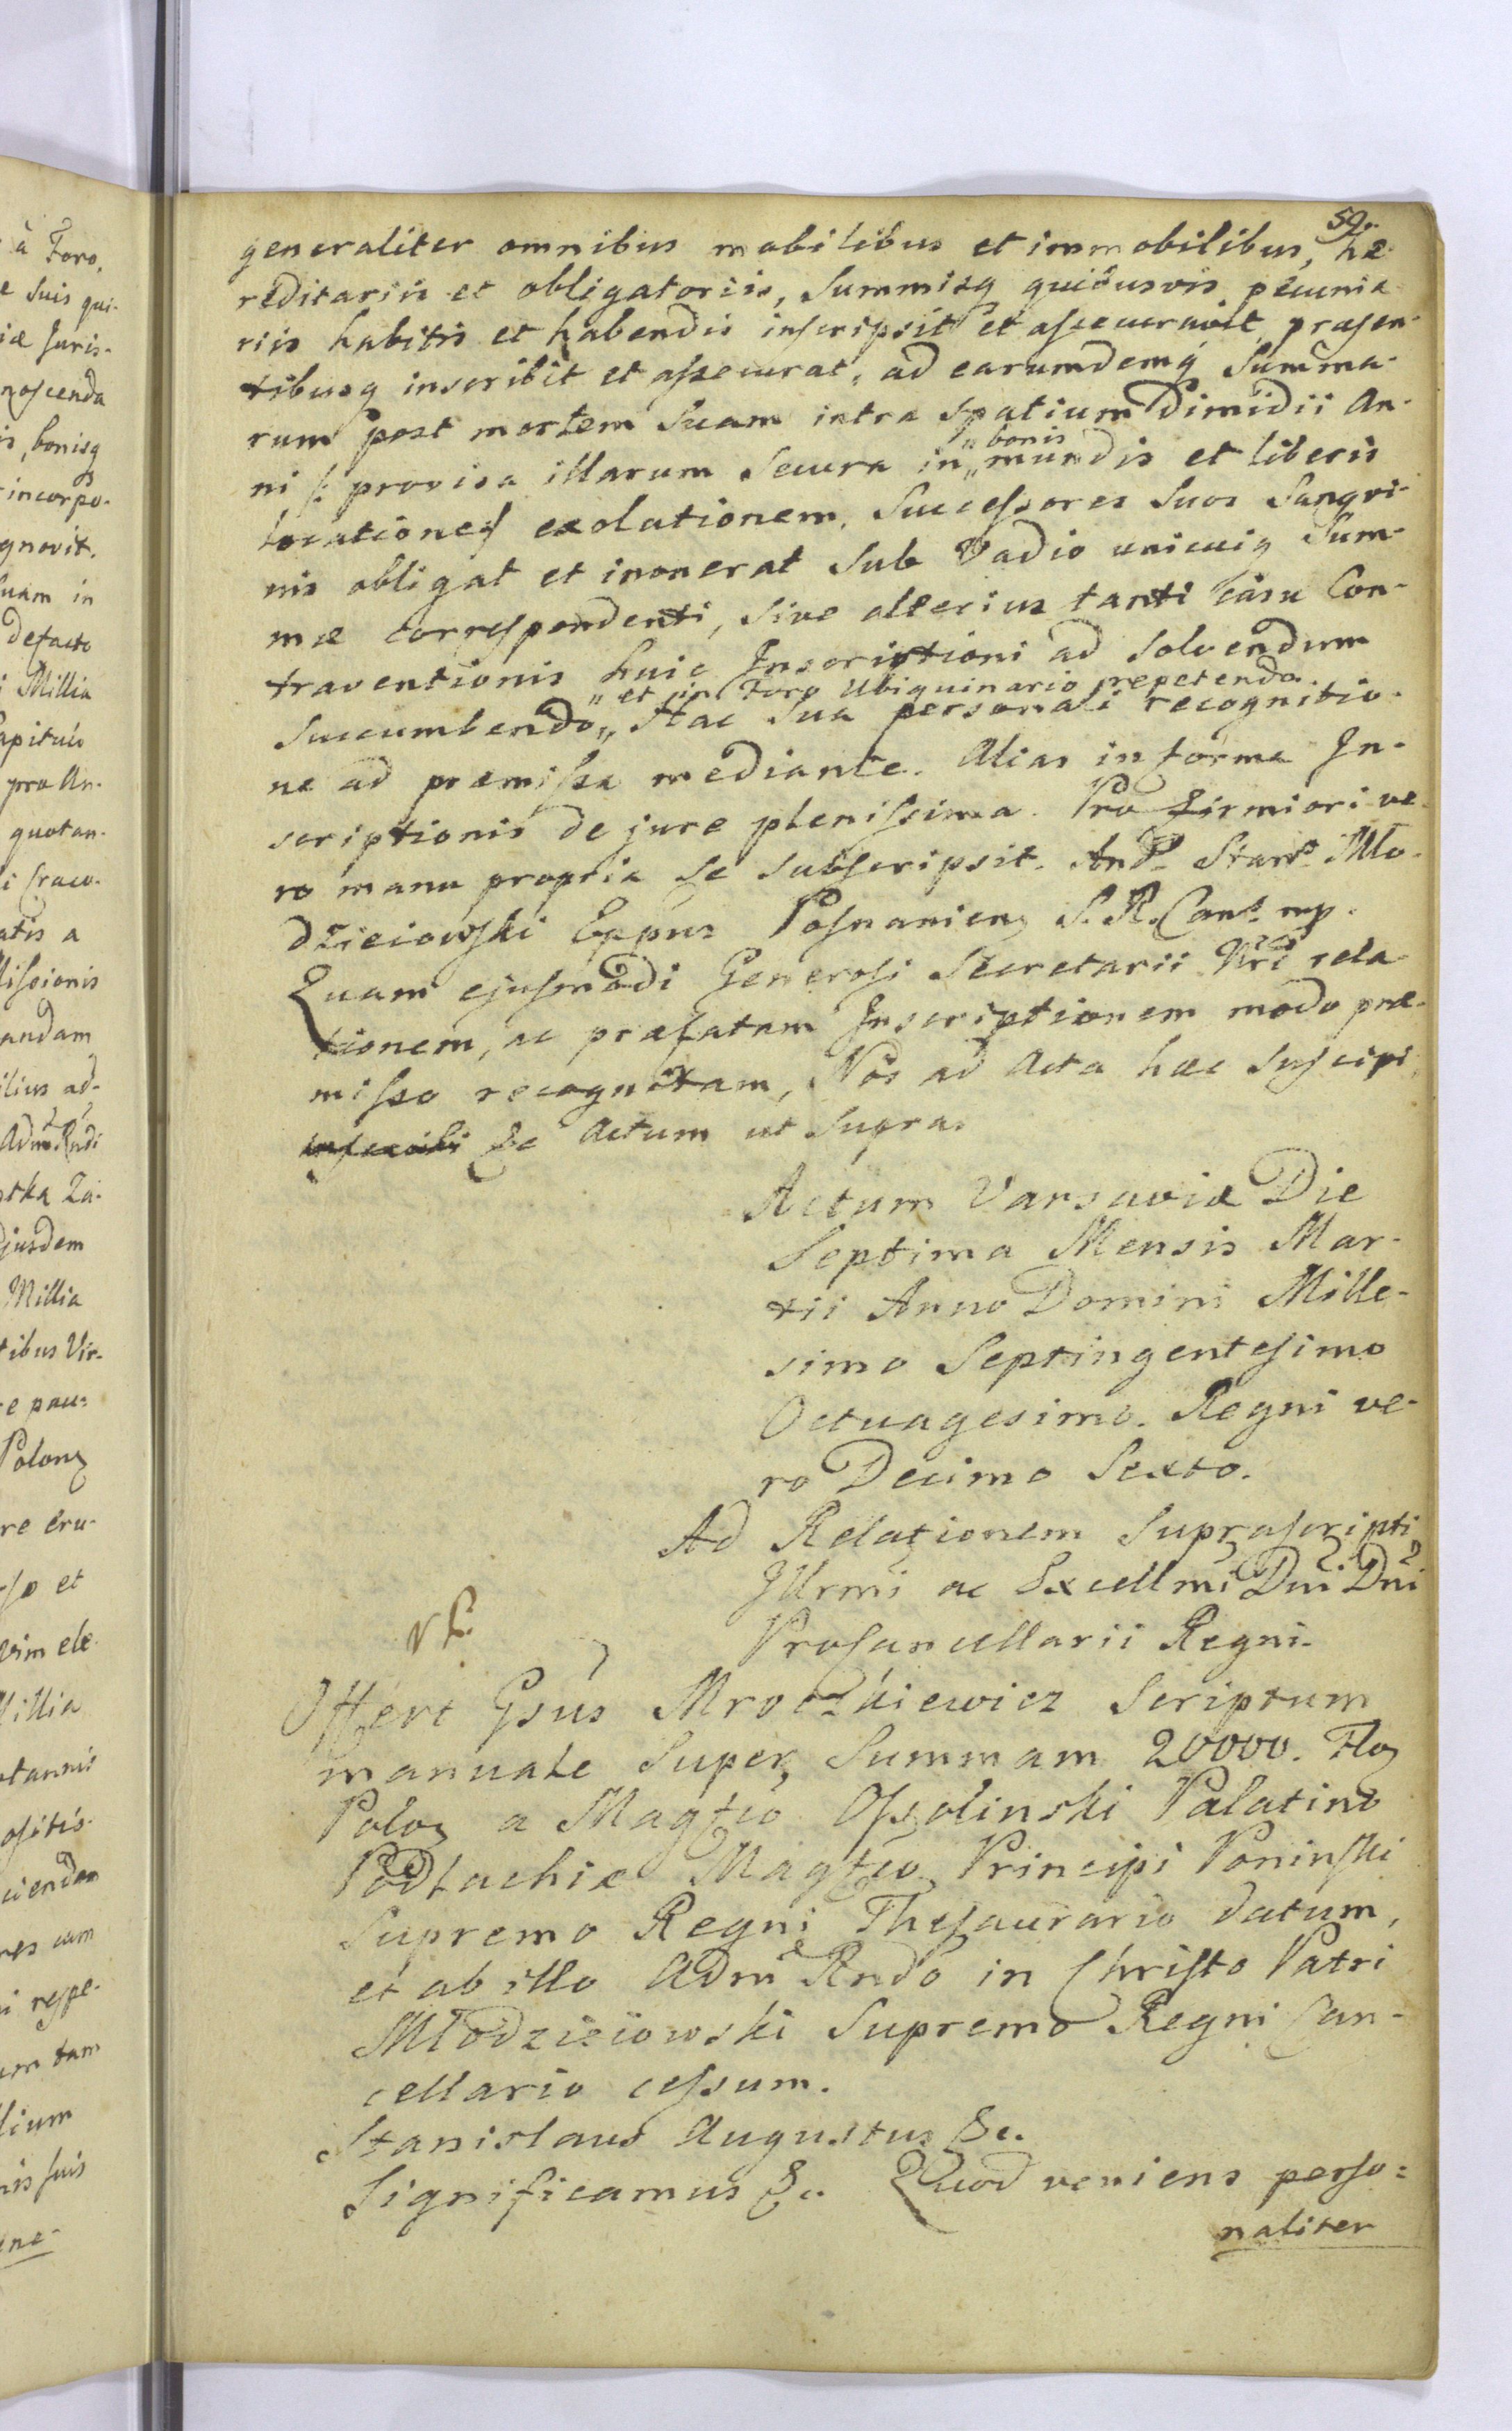 59.
generaliter omnibus mobilibus et immobilibus, hæ-
reditariis et obligatoriis, Summisq quibusvis pecunia
riis habitis et habendis inscripsit et assecuravit, præsen-
tibusq inscribit et assecurat, ad earumdemq́ Summa-
rum post mortem Suam intra Spatium Dimidii An-
ni /: provisa illarum Secura in „bonis„ mundis et liberis
locatione :/ exolutionem, Successores Suos Sangvi-
nis obligat et inonerat Sub Vadio unicuiq Sum-
mæ correspondenti, Sive alterius tanti casu Con-
traventionis huic Inscriptioni ad Solvendum
„et in Foro Ubiquinario repetendo.
Succumbendo„ Hac Sua personali recognitio-
ne ad præmissa mediante. Alias in forma In-
scriptionis de jure plenissima. Pro firmiori ve-
ro manu propria Se Subscripsit. And. Stans Mło-
dzieiowski Eppus Posnanien S. R. Canc. mp.
Quam ejusmodi Generosi Secretarii Nri rela-
tionem, ac præfatam Inscriptionem modo præ-
misso recognitam, Nos ad Acta hæc Suscipi
&c Actum ut Supra.
Actum Varsaviæ Die
Septima Mensis Mar-
tii Anno Domini Mille-
simo Septingentesimo
Octuagesimo. Regni ve-
ro Decimo Sexto.
Ad Relationem Suprascripti
Illrmi ac Excellmi Dni Dni
Procancellarii Regni.
Offert Gsus Mroczkiewicz Scriptum
manuale Super Summam 20000. Flo
Polo a Magfco Ossolinski Palatino
Podlachiæ Magfco Principi Poninski
Supremo Regni Thesaurario datum,
et ab illo Adm Rndo in Christo Patri
Młodzieiowski Supremo Regni Can-
cellario cessum.
Stanislaus Augustus &c.
Significamus &c. Quod veniens perso=
naliter